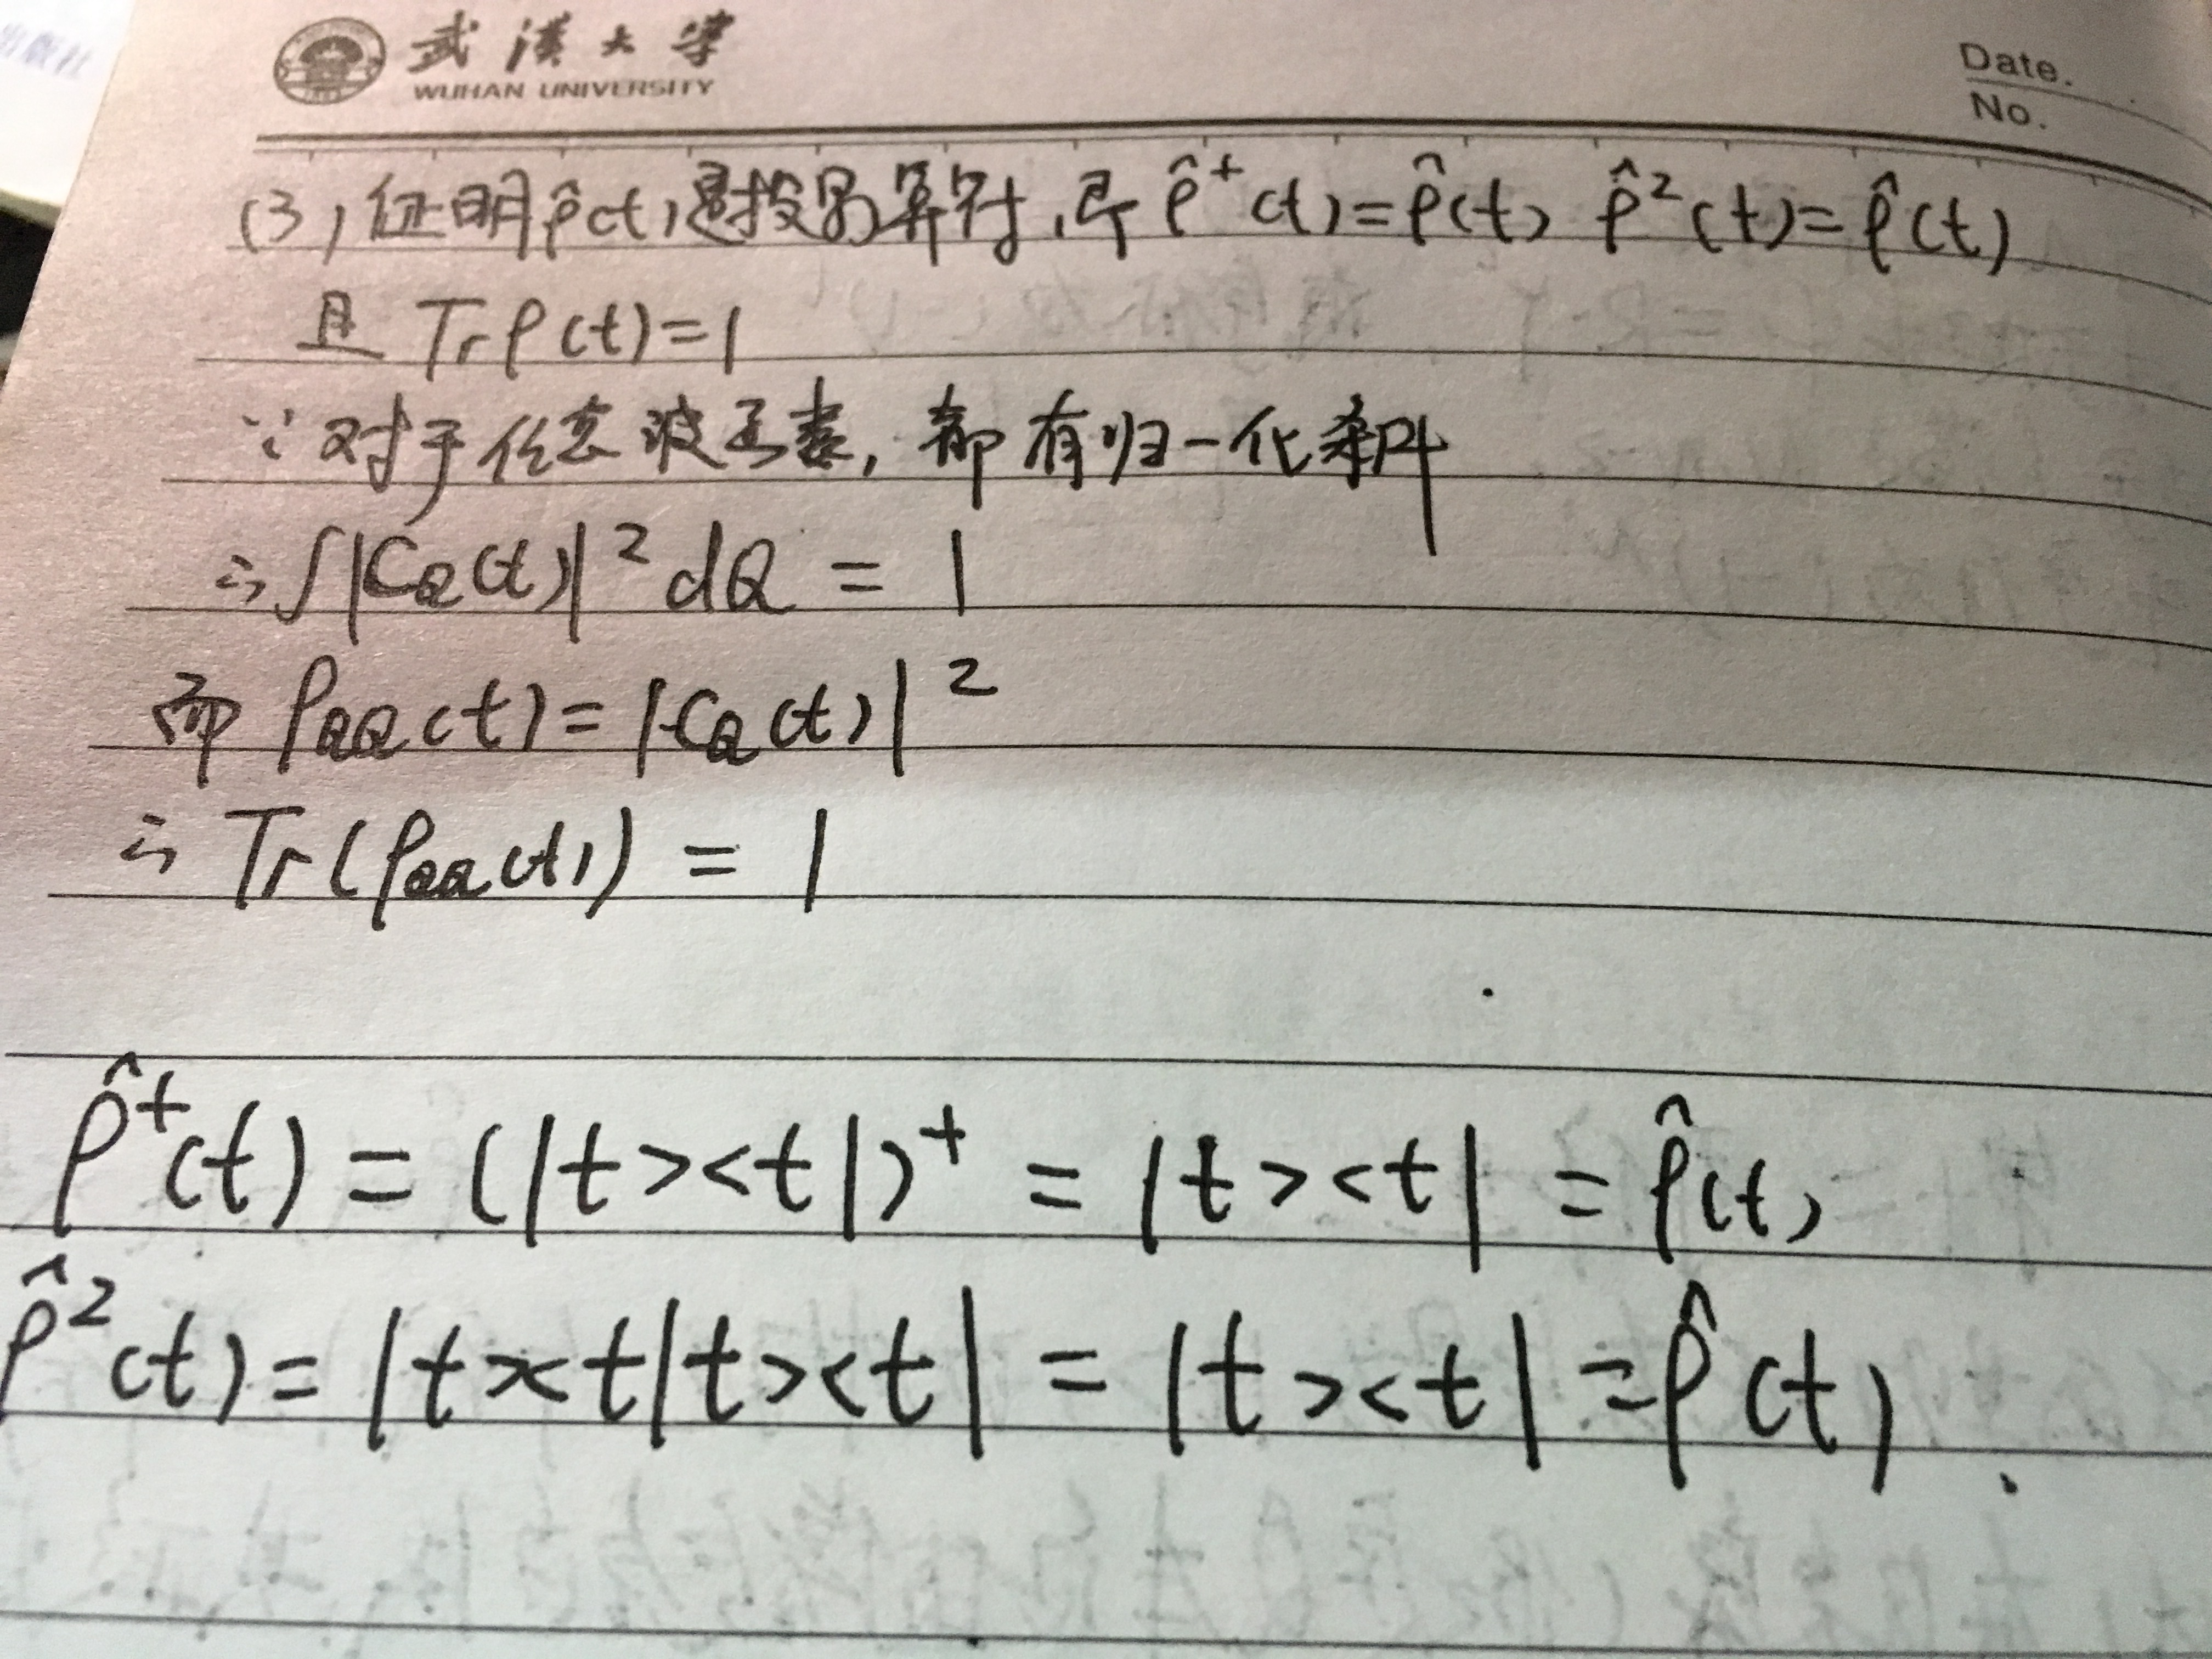 武漢大学
WUHAN UNIVERSITY
Date.
No.
(3) 证明 ρ̂(t) 是投影算符, 即 ρ̂⁺(t) = ρ̂(t) ρ̂²(t) = ρ̂(t)
且 Tr ρ(t) = 1
∵ 对于任意波函数, 都有归一化条件
∴ ∫|C_Q(t)|² dQ = 1
而 ρ_QQ(t) = |C_Q(t)|²
∴ Tr(ρ_QQ(t)) = 1
ρ̂⁺(t) = (|t><t|)⁺ = |t><t| = ρ̂(t)
ρ̂²(t) = |t><t|t><t| = |t><t| = ρ̂(t)